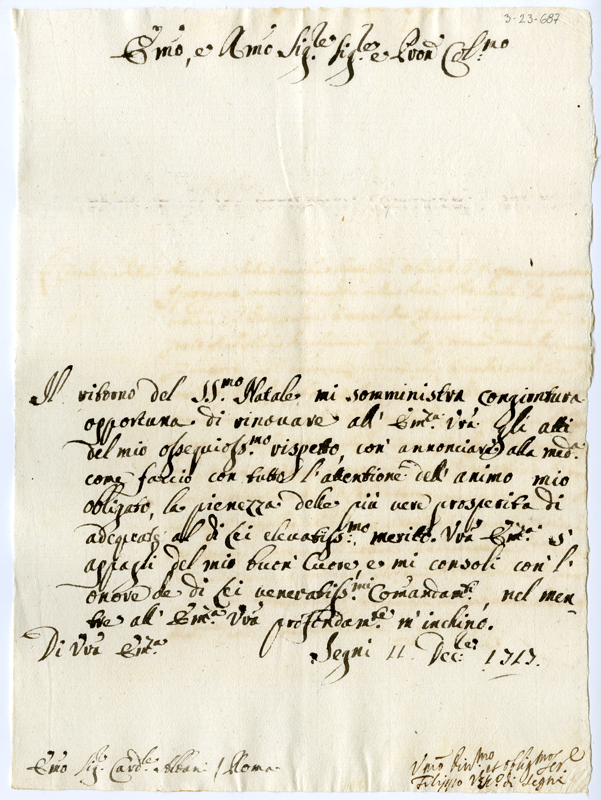 3-23-687
Emo, e Rmo Sig.re Sig.re e Pron Col.mo
Il ritorno del SS.mo Natale mi somministra congiontura
opportuna di rinovare all' Em.za Vra Gli atti
del mio ossequioss.mo rispetto, con' annonciare alla med.a
come faccio con tutto l'attentione dell' animo mio
obligato, la pienezza delle più vere prosperità di
adequate al di Lei elevatiss.mo merito. Vra Em.za s'
apaghi del mio buon' Cuore, e mi consoli con l'
onore de di Lei veneratiss.mi Comandam.ti nel men-
tre all' Em.za Vra profondam.te m'inchino.
Di Vra Em.za
Segni 11 Dec.re 1713.
Emo Sig. Card.le Albani / Roma
Um.o Div.mo et obligmo Ser.e
Filippo Vesc.o di Segni